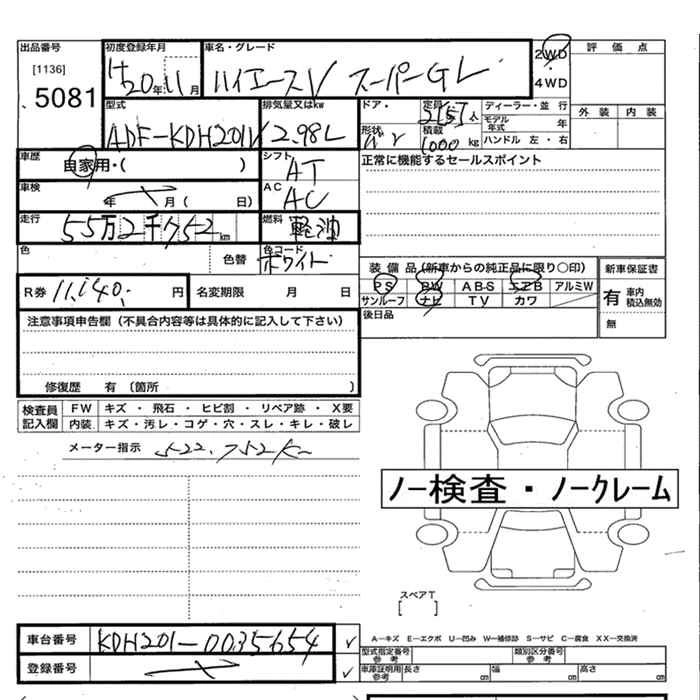 出品番号 初度登録年月 車名・グレード 2WD 評価点
[1136] H20年11月 ハイエースV スーパーGL ・
5081 4WD
型式 排気量又はkw ドア・ 定員 人 ディーラー・並 行 外装 内装
ADF-KDH201V 2.98L 形状 積載 1000 kg モデル年式 年
ハンドル 左・右
車歴 自家用・( ) シフト AT 正常に機能するセールスポイント
車検 年 月( 日) AC AC
走行 55万2千752km 燃料 軽油
色 色替 色コード ホワイト 装備品(新車からの純正品に限り○印) 新車保証書
R券 11,140. 円 名変期限 月 日 PS PW ABS エアB アルミW 有 車内積込無効
サンルーフ ナビ TV カワ 無
注意事項申告欄(不具合内容等は具体的に記入して下さい) 後日品
修復歴 有(箇所 )
検査員記入欄 FW キズ・飛石・ヒビ割・リペア跡・X要
内装 キズ・汚レ・コゲ・穴・スレ・キレ・破レ
メーター指示 552.752K
ノー検査・ノークレーム
スペアT
[ ]
車台番号 KDH201-0035654 ✓ A-キズ E-エクボ U-凹み W-補修跡 S-サビ C-腐食 XX-交換済
型式指定番号 参考 類別区分番号 参考
登録番号 ✓ 車庫証明用参考 長さ cm 幅 cm 高さ cm